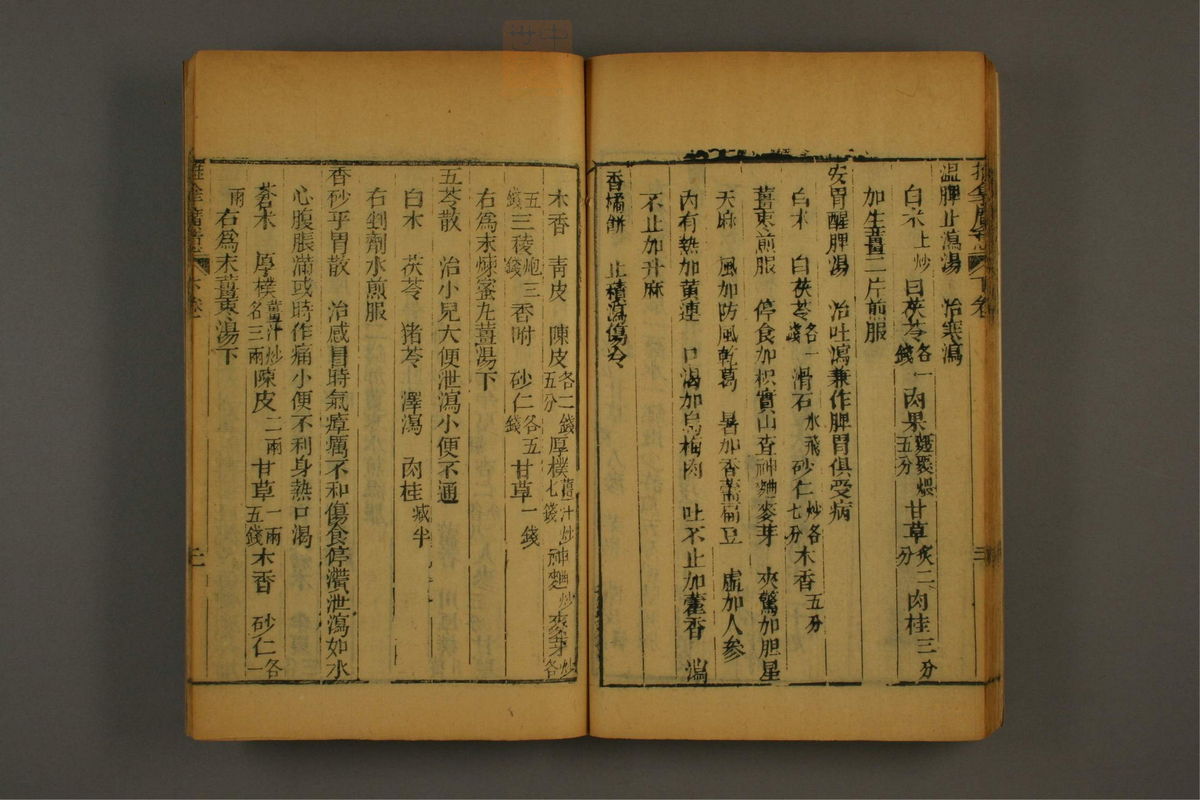 溫脾止瀉湯　治寒瀉
白朮土炒　白茯苓各一錢　肉果麵裹煨五分　甘草炙二分　肉桂三分
加生薑二片煎服
安胃醒脾湯　治吐瀉兼作脾胃俱受病
白朮　白茯苓各一錢　滑石水飛　砂仁炒各七分　木香五分
薑棗煎服　停食加枳實山查神麯麥芽　夾驚加胆星
天麻　風加防風乾葛　暑加香薷扁豆　虛加人參
內有熱加黃連　口渴加烏梅肉　吐不止加藿香　瀉
不止加升麻
香橘餅　止積瀉傷冷
木香　青皮　陳皮各二錢五分　厚樸薑汁炒七錢　神麯炒　麥芽炒各
五錢　三稜炮三錢　香附　砂仁各五錢　甘草一錢
右為末煉蜜丸薑湯下
五苓散　治小兒大便泄瀉小便不通
白朮　茯苓　猪苓　澤瀉　肉桂減半
右剉劑水煎服
香砂平胃散　治感冒時氣瘴癘不和傷食停滯泄瀉如水
心腹脹滿或時作痛小便不利身熱口渴
蒼朮　厚樸薑汁炒各三兩　陳皮二兩　甘草一兩五錢　木香　砂仁各一
兩　右為末薑棗湯下